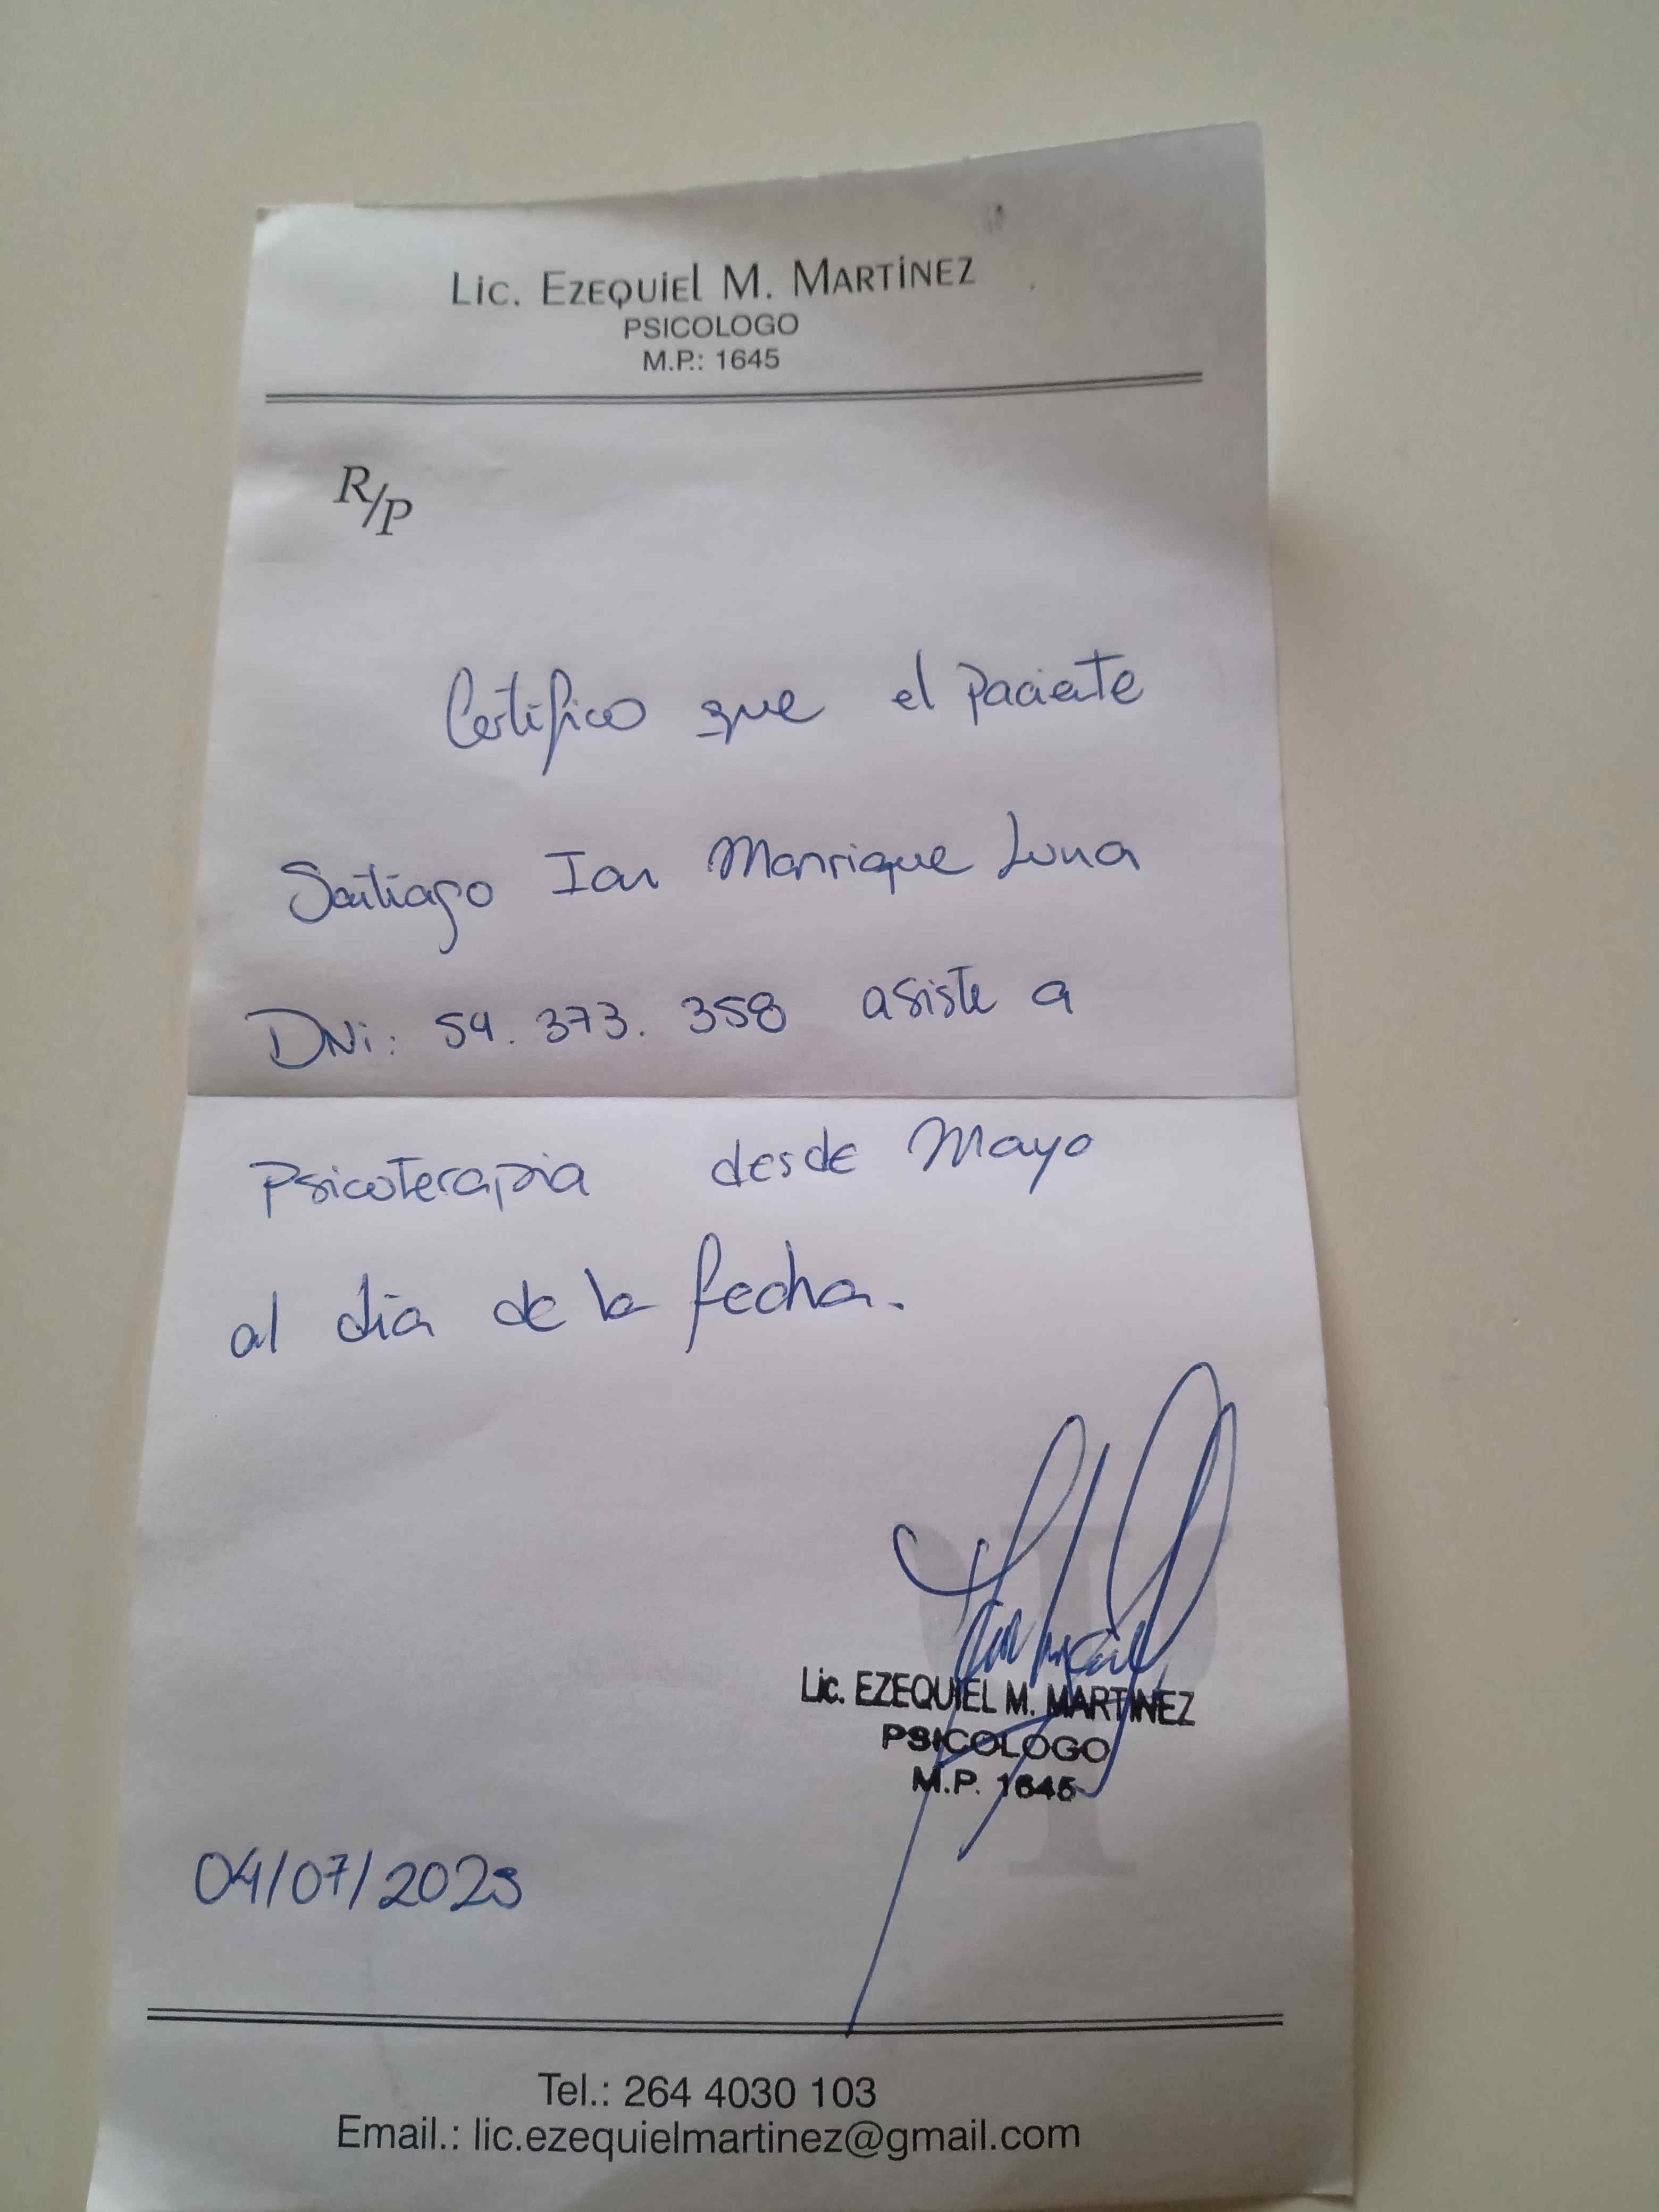 Lic. Ezequiel M. Martínez
PSICOLOGO
M.P.: 1645
R/P
Certifico que el paciente
Santiago Ian Manrique Luna
DNi: 54.373.358 asiste a
Psicoterapia desde Mayo
al dia de la fecha.
Lic. EZEQUIEL M. MARTINEZ
PSICOLOGO
M.P. 1645
04/07/2023
Tel.: 264 4030 103
Email.: lic.ezequielmartinez@gmail.com